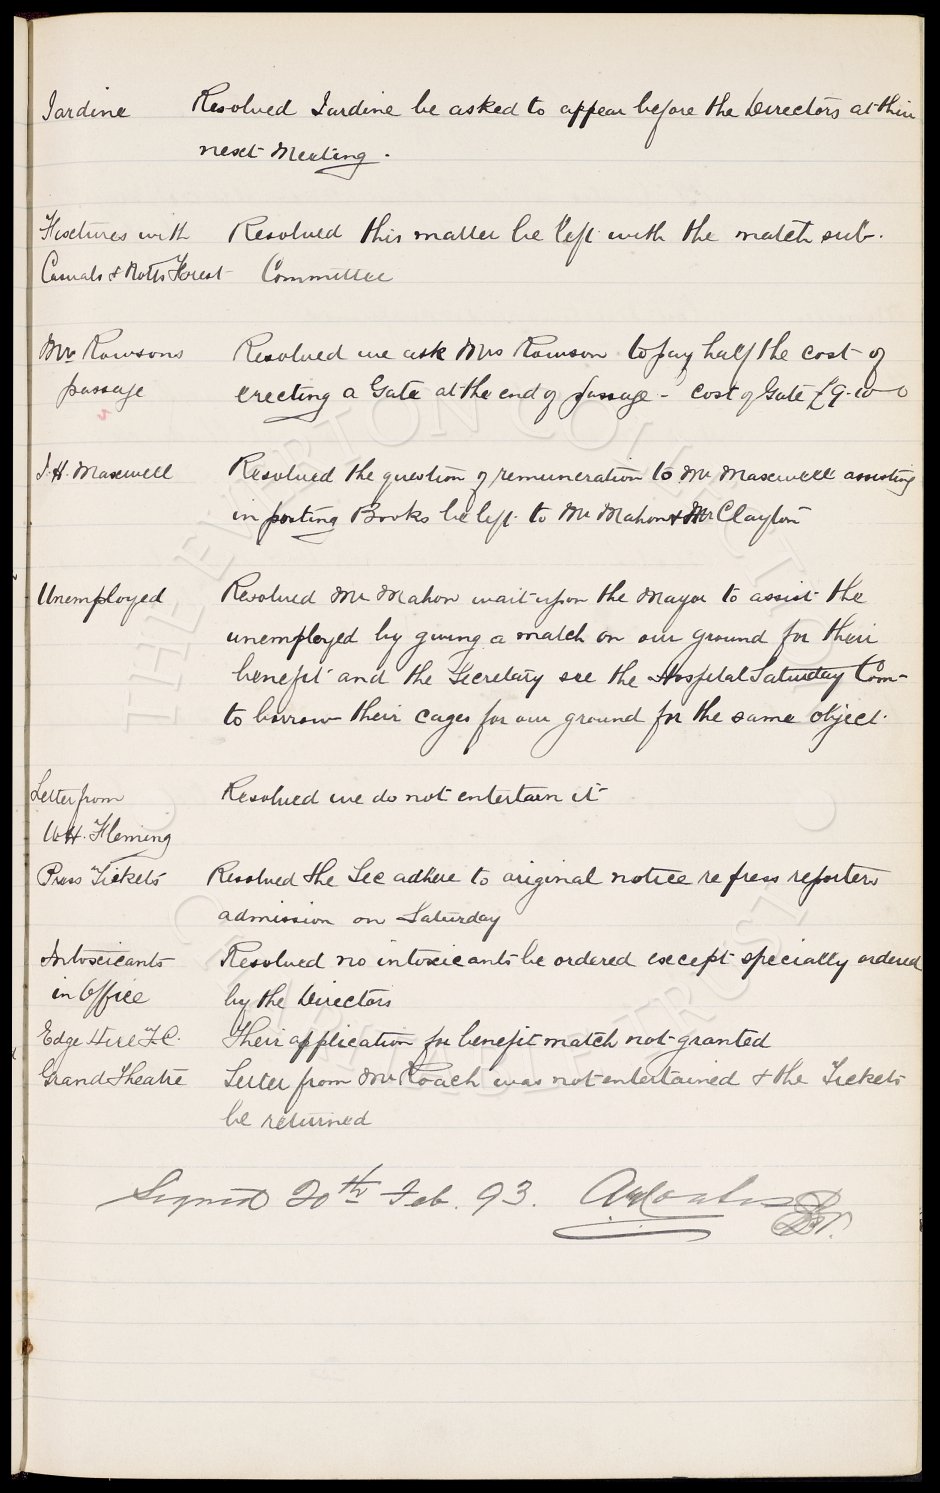 Jardine Resolved Jardine be asked to appear before the Directors at their
next Meeting.
Fixtures with Resolved this matter be left with the match sub-
Casuals & Notts Forest Committee
Mrs Rowsons Resolved we ask Mrs Rowson to pay half the cost of
passage erecting a Gate at the end of passage - cost of Gate £9-10-0
J.H. Maxwell Resolved the question of remuneration to Mr Maxwell assisting
in posting Books be left to Mr Mahon & Mr Clayton
Unemployed Resolved Mr Mahon wait upon the Mayor to assist the
unemployed by giving a match on our ground for their
benefit and the Secretary see the Hospital Saturday Com-
to borrow their cages for our ground for the same object.
Letter from Resolved we do not entertain it
W.H. Fleming
Press Tickets Resolved the Sec adhere to original notice re press reporters
admission on Saturday
Intoxicants Resolved no intoxicants be ordered except specially ordered
in Office by the Directors
Edge Hill F.C. Their application for benefit match not granted
Grand Theatre Letter from Mr Roach was not entertained & the Tickets
be returned
Signed 20th Feb. 93.
THE EVERTON COLLECTION
CHARITABLE TRUST